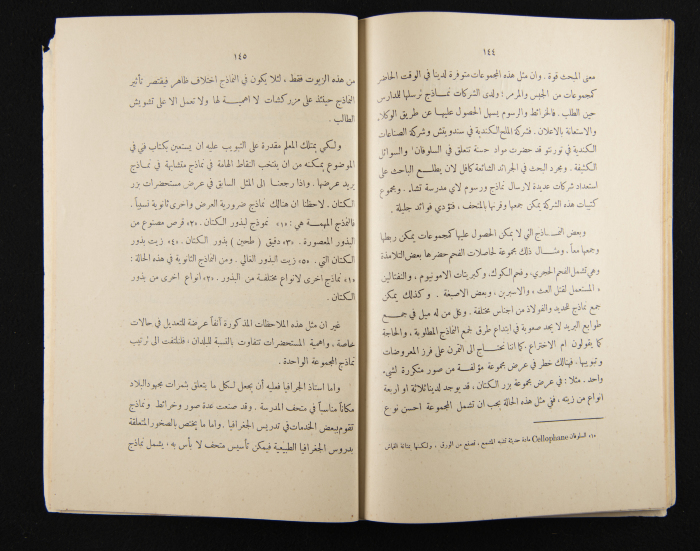 ١٤٤
معنى المبحث قوة . وان مثل هذه المجموعات متوفرة لدينا في الوقت الحاضر
كمجموعات من الجبس والمرمر ؛ ولدى الشركات نماذج ترسلها للمدارس
حين الطلب . فالخرائط والرسوم يسهل الحصول عليها عن طريق الوكلاء
والاستعانة بالاعلان . فشركة الملح الكندية في سندويتش وشركة الصناعات
الكندية في تورنتو قد حضرت مواد حسنة تتعلق في السلوفان¹ والسوائل
الكثيفة . ومجرد البحث في الجرائد الشائعة كافل لان يطلع الباحث على
استعداد شركات عديدة لارسال نماذج ورسوم لاي مدرسة تشاء . ومجموع
كتيبات هذه الشركة يمكن جمعها وقرنها بالمتحف ، فتؤدي فوائد جليلة .
وبعض النماذج التي لا يمكن الحصول عليها كمجموعات يمكن ربطها
وجمعها معاً . ومثال ذلك مجموعة لحاصلات الفحم حضرها بعض التلامذة
وهي تشمل الفحم الحجري ، وفحم الكوك ، وكبريتات الامونيوم ، والنفتالين
، المستعمل لقتل العث ، والاسبرين ، وبعض الاصبغة . وكذلك يمكن
جمع نماذج للحديد والفولاذ من اجناس مختلفة . وكل من له ميل في جمع
طوابع البريد لا يجد صعوبة في ابتداع طرق لجمع النماذج المطلوبة . والحاجة
كما يقولون ام الاختراع . كما اننا نحتاج الى التمرن على فرز المعروضات
وتبويبها . فهنالك خطر في عرض مجموعة مؤلفة من صور متكررة لشيء
واحد . مثلا : في عرض مجموعة بزر الكتان . قد يوجد لدينا ثلاثة او اربعة
انواع من زيته ، ففي مثل هذه الحالة يجب ان تشمل المجموعة احسن نوع
«١» السلوفان Cellophane مادة حديثة تشبه الشمع ، تصنع من الورق . ولكنها بمتانة القماش
١٤٥
من هذه الزيوت فقط ، لئلا يكون في النماذج اختلاف ظاهر فيقتصر تأثير
النماذج حينئذ على مزركشات لا اهمية لها ولا تعمل الا على تشويش
الطالب .
ولكي يمتلك المعلم مقدرة على التبويب عليه ان يستعين بكتاب فني في
الموضوع يمكنه من ان ينتخب النقاط الهامة في نماذج متشابهة في نماذج
يريد عرضها . واذا رجعنا الى المثل السابق في عرض مستحضرات بزر
الكتان . لاحظنا ان هنالك نماذج ضرورية العرض واخرى ثانوية نسبياً .
فالنماذج المهمة هي : «١» نموذج لبذور الكتان . «٢» قرص مصنوع من
البذور المعصورة . «٣» دقيق ( طحين ) بذور الكتان . «٤» زيت بذور
الكتان الني . «٥» زيت البذور المغالي . ومن النماذج الثانوية في هذه الحالة :
«١» نماذج اخرى لانواع مختلفة من البذور . «٢» انواع اخرى من بذور
الكتان .
غير ان مثل هذه الملاحظات المذكورة آنفاً عرضة للتعديل في حالات
خاصة ، واهمية المستحضرات تتفاوت بالنسبة للبلدان ، فلنلتفت الى ترتيب
نماذج المجموعة الواحدة .
واما استاذ الجغرافيا فعليه ان يجعل لكل ما يتعلق بثمرات مجهود البلاد
مكاناً مناسباً في متحف المدرسة . وقد صنعت عدة صور وخرائط ونماذج
تقوم ببعض الخدمات في تدريس الجغرافيا . واما ما يختص بالصخور المتعلقة
بدروس الجغرافيا الطبيعية فيمكن تأسيس متحف لا بأس به ، يشمل نماذج